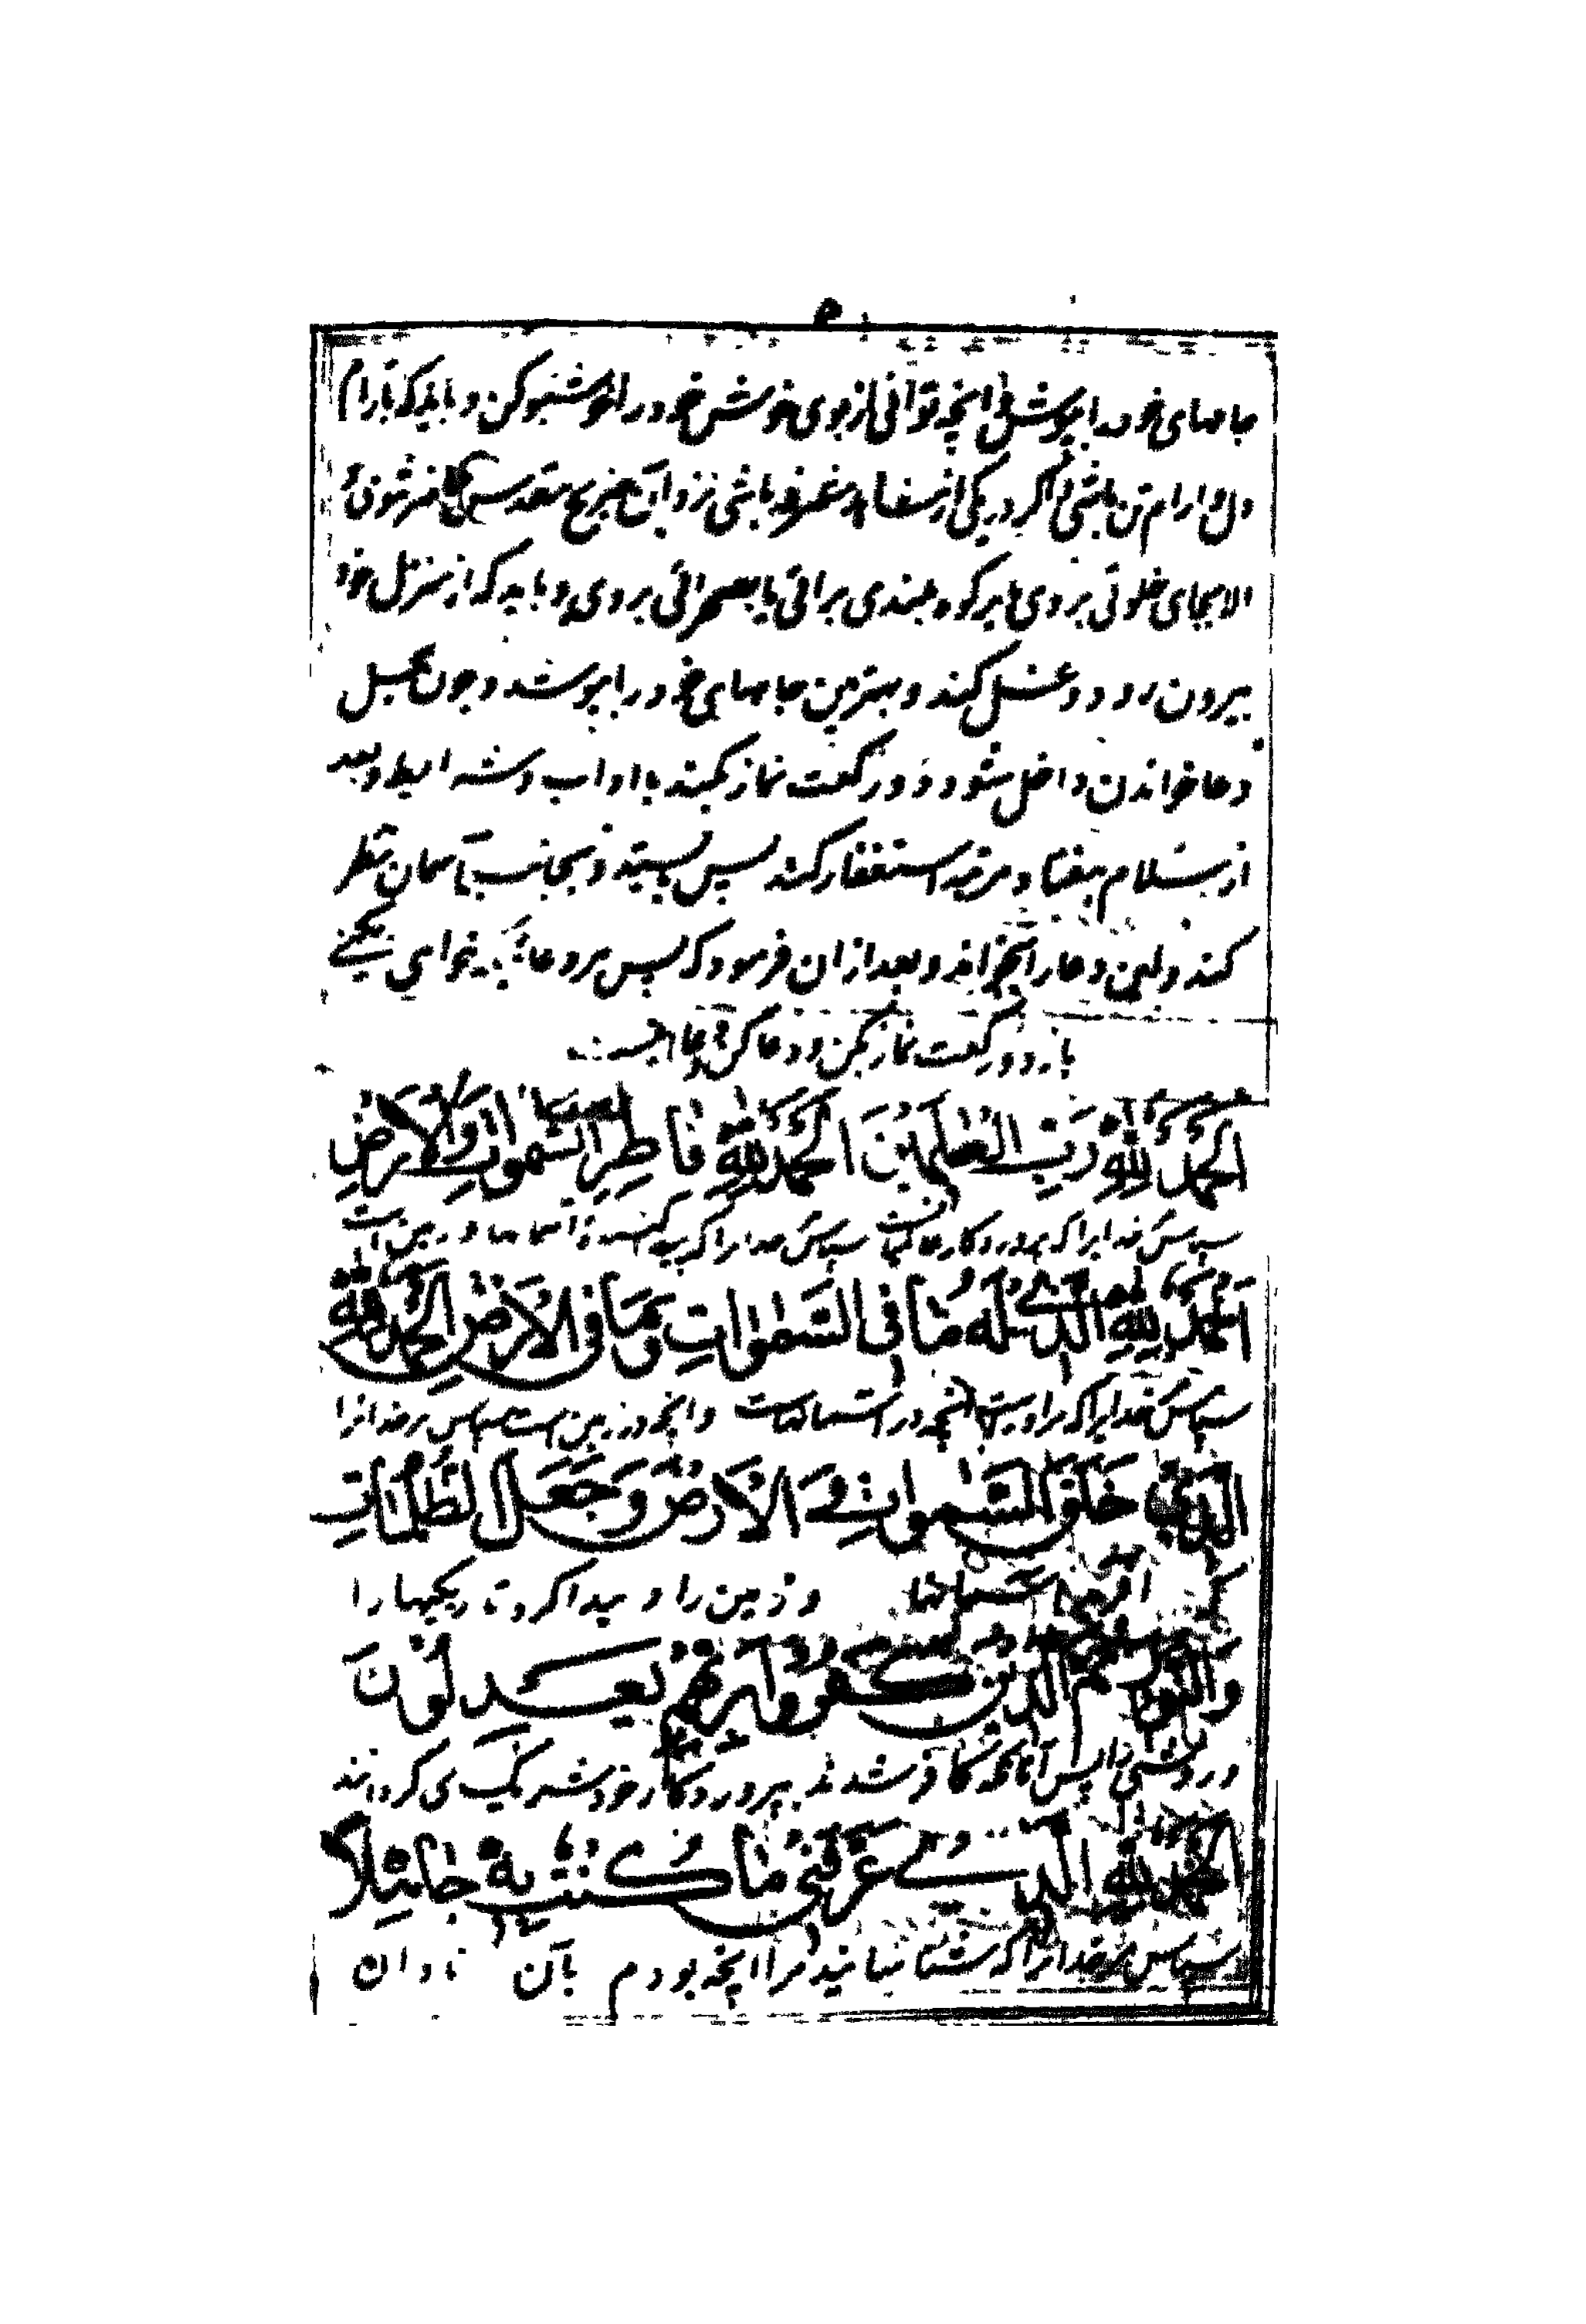 جامهای خود را بپوش و انچه توانی از بوی خوش خود را خوشبو کن و باید که بآرام
دل و ارام تن باشی و اگر در یکی از مشاهد باشی نزد آن ضریح مقدس حاضر شوی
والا بجای خلوتی بروی یا بر کوه بلندی برائی یا بصحرائی بروی و باید که از منزل خود
بیرون رود و غسل کند و بهترین جامهای خود را بپوشد و چون
دعا خواندن داخل شود دو رکعت نماز بکند با اداب و شرایط و بعد
از سلام هفتاد مرتبه استغفار کند پس بایستد و بجانب آسمان نظر
کند و این دعا را بخواند و بعد ازان فرمود که پس هر دعائیکه خواهی بکنی
باز دو رکعت نماز بکن و دعا کن دعا اینست
اَلْحَمْدُ لِلّٰهِ رَبِّ الْعٰلَمِیْنَ اَلْحَمْدُ لِلّٰهِ فَاطِرِ السَّمٰوَاتِ وَالْاَرْضِ
سپاس خدایرا که پروردگار عالمیانست سپاس خدایرا که پدید کننده آسمانها و زمین است
اَلْحَمْدُ لِلّٰهِ الَّذِیْ لَهٗ مَا فِی السَّمٰوَاتِ وَمَا فِی الْاَرْضِ اَلْحَمْدُ لِلّٰهِ
سپاس خدایرا که مر او راست انچه در آسمانهاست وانچه در زمین است سپاس مر خدایرا
الَّذِیْ خَلَقَ السَّمٰوَاتِ وَ الْاَرْضَ وَجَعَلَ الظُّلُمَاتِ
که آفرید آسمانها و زمین را و پیدا کرد تاریکیها را
وَالنُّوْرَ ثُمَّ الَّذِیْنَ کَفَرُوْا بِرَبِّهِمْ یَعْدِلُوْنَ
و روشنی را پس آنانکه کافر شدند بپروردگار خود شریک می گردانند
اَلْحَمْدُ لِلّٰهِ الَّذِیْ عَرَّفَنِیْ مَا کُنْتُ بِهٖ جَاهِلًا
سپاس مر خدایرا که شناسانید مرا انچه بودم بآن نادان